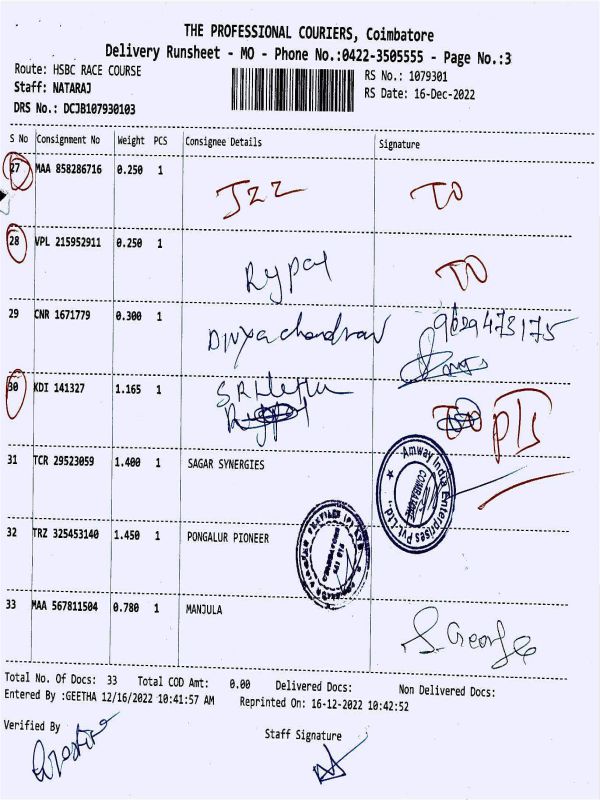 THE PROFESSIONAL COURIERS, Coimbatore
Delivery Runsheet - MO - Phone No.:0422-3505555 - Page No.:3
Route: HSBC RACE COURSE
Staff: NATARAJ
DRS No.: DCJB107930103
RS No.: 1079301
RS Date: 16-Dec-2022
S No Consignment No Weight PCS Consignee Details Signature
27 MAA 858286716 0.250 1
JZZ TO
28 VPL 215952911 0.250 1
TO
29 CNR 1671779 0.300 1
Divyachandran 9629473175
30 KDI 141327 1.165 1
31 TCR 29523059 1.400 1 SAGAR SYNERGIES
Amway India Enterprises Pvt. Ltd.
COIMBATORE
32 TRZ 325453140 1.450 1 PONGALUR PIONEER
33 MAA 567811504 0.780 1 MANJULA
S. George
Total No. Of Docs: 33 Total COD Amt: 0.00 Delivered Docs: Non Delivered Docs:
Entered By :GEETHA 12/16/2022 10:41:57 AM Reprinted On: 16-12-2022 10:42:52
Verified By
Staff Signature